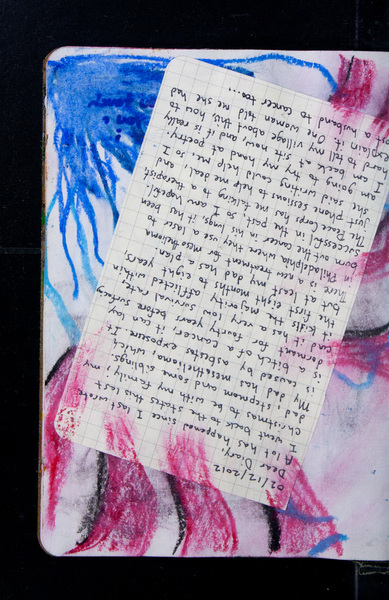 02/12/2012
Dear Diary,
A lot has happened since I last wrote
I went back to the states this last
Christmas to be with my family; my
dad, stepmom and some siblings.
My dad has mesothelioma which
is caused by asbestos exposure. It
is a bitch of a cancer; it can lay
dormant for fourty years before surfacing
and it has a very low survival rate.
It kills the majority afflicted within
the first eight months to eight years
but at least my dad has a plan:
There is a new treatment for mesothelioma
in Philadelphia where they use a laser to
burn out the cancer in his lungs, it has been
successful in the past. I am hopeful.
The Peace Corps has me talking to a therapist
just phone sessions to help me deal, and
she said writing could help me so I
am going to try my hand at poetry.
I am back at site now, and it is really
hard to tell my village about this, how to
explain it. One woman told me she had
lost a husband to cancer too....